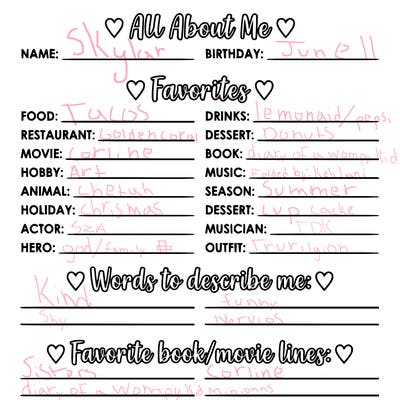 ♡ All About Me ♡
NAME: Skylar BIRTHDAY: June 11
♡ Favorites ♡
FOOD: Tacos DRINKS: lemonaid/peps,
RESTAURANT: Goldencoral DESSERT: Donuts
MOVIE: Corline BOOK: diary of a wompy kid
HOBBY: Art MUSIC: Folded by: kehlani
ANIMAL: chetah SEASON: Summer
HOLIDAY: chrismas DESSERT: cup cacke
ACTOR: SZA MUSICIAN: IDK
HERO: god/family OUTFIT:
♡ Words to describe me: ♡
Kind funny
Shy Nervios
♡ Favorite book/movie lines: ♡
Sisters Corline
diary of a wompy kid minions